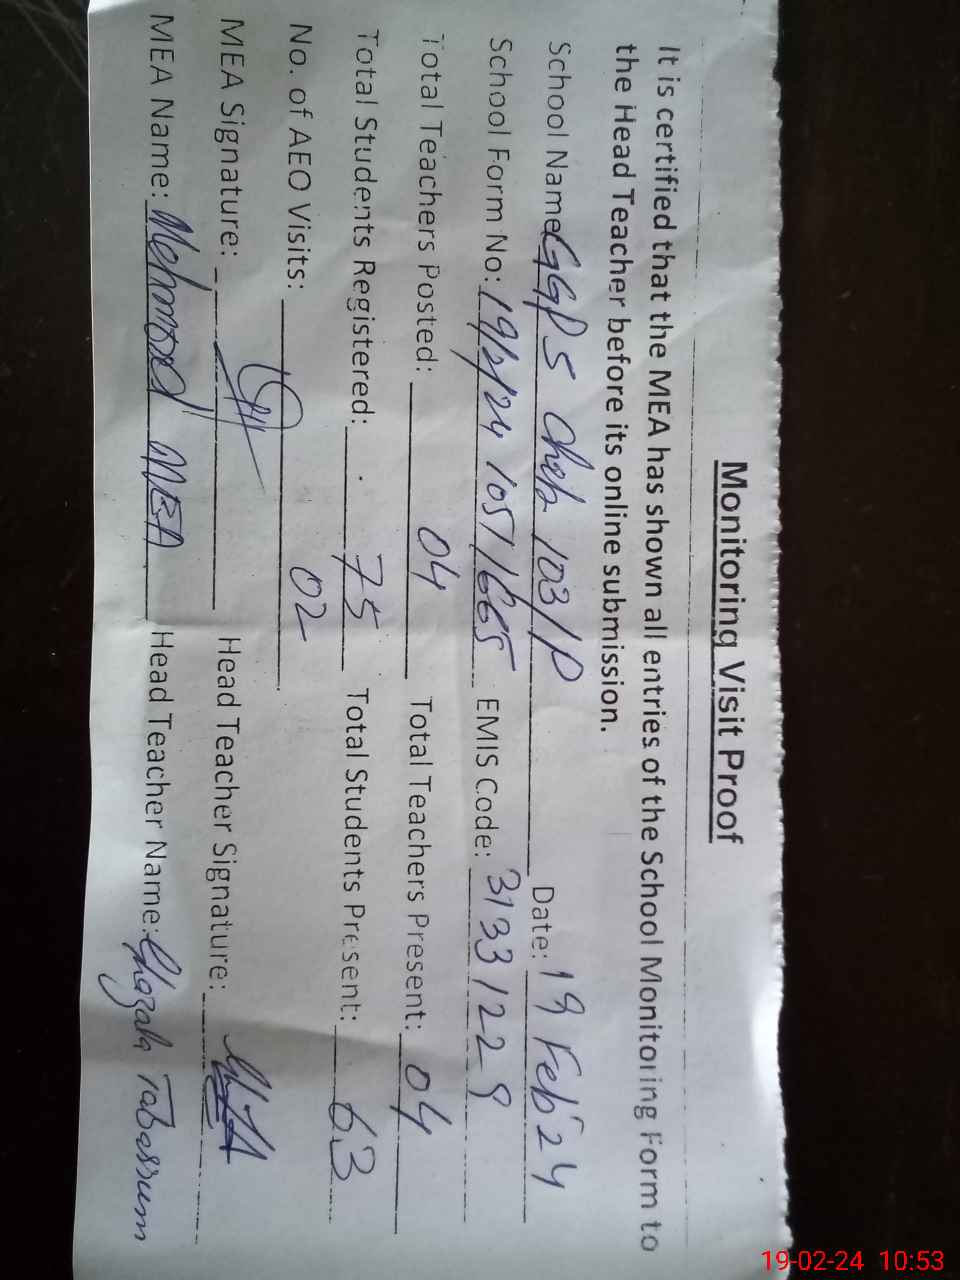 Monitoring Visit Proof
It is certified that the MEA has shown all entries of the School Monitoring Form to
the Head Teacher before its online submission.
School Name GGPS Chak 103/P Date: 19 Feb 24
School Form No: 19/2/24 1051665 EMIS Code: 31331229
Total Teachers Posted: 04 Total Teachers Present: 04
Total Students Registered: 75 Total Students Present: 63
No. of AEO Visits: 02
MEA Signature: Head Teacher Signature:
MEA Name: Mehmood MEA Head Teacher Name: Ghazala Tabassum
19-02-24 10:53